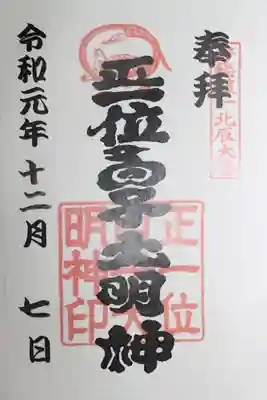 奉拝
正一位子大明神
令和元年十二月七日
北辰大
正一位
大
明神印